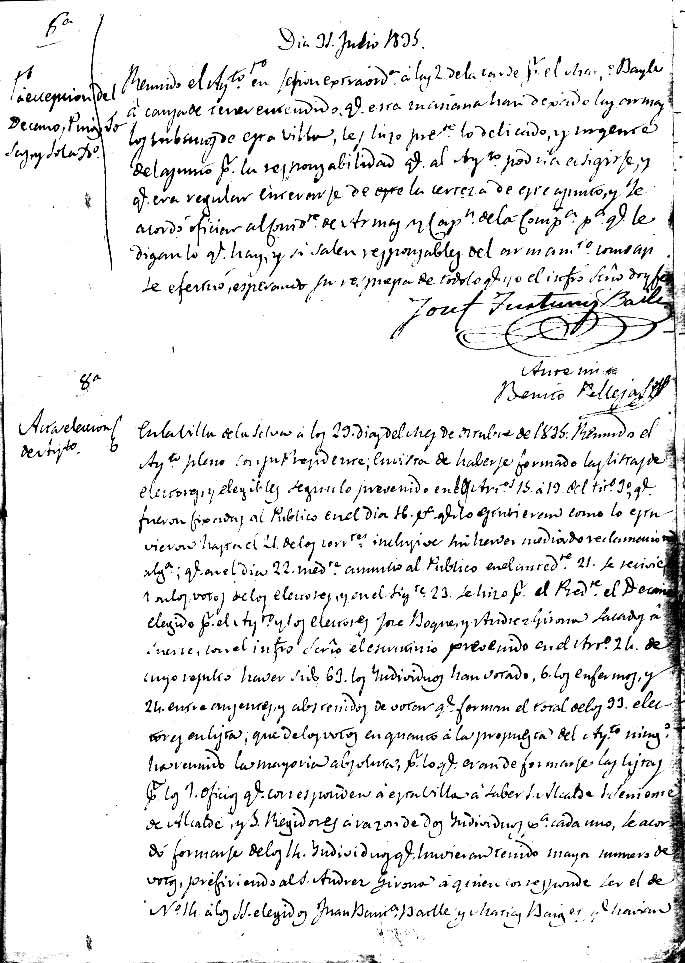 6ª
Dia 31. Julio 1835.
Reunido el Aytº en sesion extraordª á las 2 de la tarde pr. el Bayle
á causa de tener entendido, q. esta mañana han dexado las armas
los urbanos de esta villa, les hizo preste lo delicado, y urgente
del asunto pr. la responsabilidad q. al Ayto podria exigirse, y
q. era regular enterarse de la certeza de este asunto, y se
acordó oficiar al Comdte de Armas y Capn de la Compª pª q. le
digan lo q. hay, y si salen responsables del armamto como asi
se efectuó, esperando su respuesta de todo lo q. yo el infro Srio doy fe
Josef Fortuny Bayle
Ante mi
Benito Pelleja Srio
á excepcion del
Decano,
8ª
Acta eleccion
de Aytto.
En la Villa de la Selva á los 29. dias del Mes de octubre de 1835. Reunido el
Aytto pleno con su Presidente; En vista de haberse formado las listas de
electores, y elegibles segun lo prevenido en los Artos 15. á 19. del titº 3º, q.
fueron fixadas al Publico en el dia 16. pª q. lo estuvieran como lo estu
vieron hasta el 21. de los corrtes inclusive sin haver mediado reclamacion
algª; q. en el dia 22. medte anuncio al Publico en el antedte 21. se recivie
ron los votos de los electores, y en el sigte 23. se hizo pr. el Presdte el Decano
elegido pr. el Ayto y los electores Jose Boque, y Andres Girona sacados á
suerte, con el infro Srio el escrutinio prevenido en el Arto 24. de
cuyo resultó haver sido 63. los Individuos han votado, 6. los enfermos, y
24. entre ausentes, y abstenidos de votar q. forman el total de los 93. elec-
tores en lista; que de los votos en quanto á la propuesta del Ayto ningº
ha reunido la mayoria absoluta, pr. lo q. eran de formarse las listas
pr. los 7. oficios q. corresponden á esta Villa á saber 1. Alcalde 1. teniente
de Alcalde, y 5. Regidores á razon de dos Individuos pª cada uno, se acor
dó formarse de los 14. Individuos q. huvieran tenido mayor numero de
votos, prefiriendo al S. Andres Girona á quien corresponde ser el de
Nº 14. á los SS. elegidos Juan Bauª Batlle y Matias Baiges, q. havian